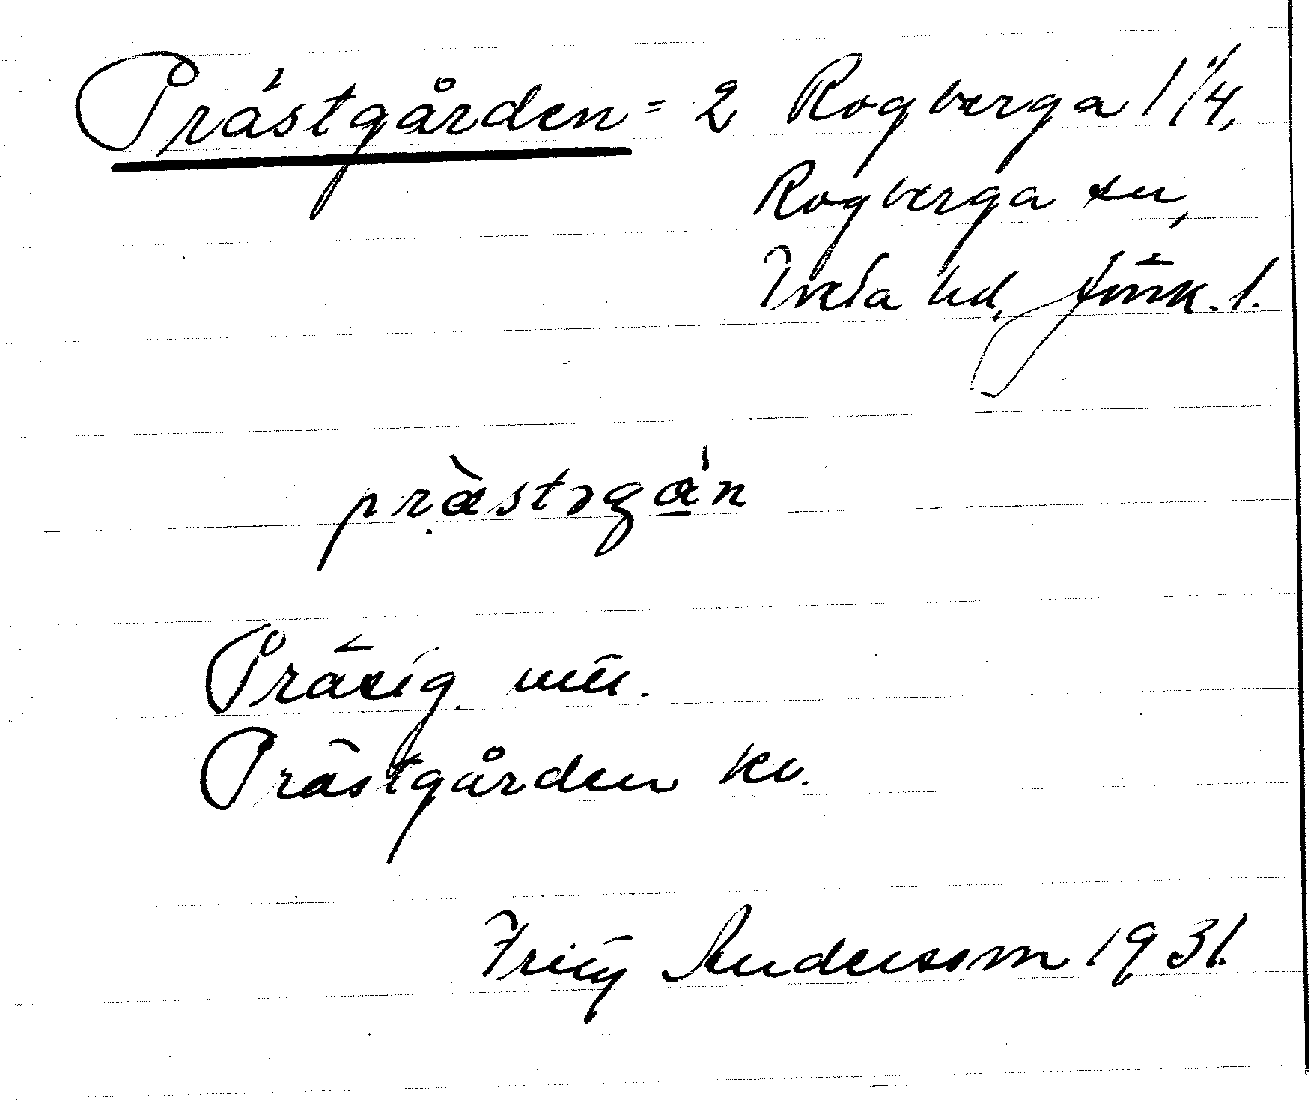 Prästgården = 2 Rogberga 1 1/4,
Rogberga sn,
Tveta hd, Jönk. l.
prästəga'n
Prästg. utt.
Prästgården kv.
Fritz Andersson 1931.